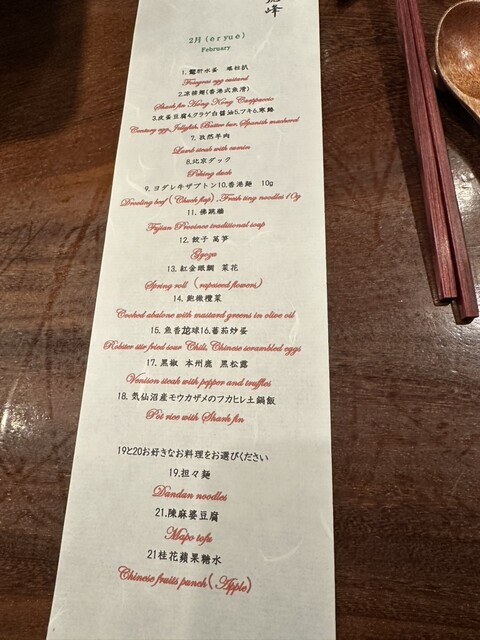 峰
2月 (èr yuè)
February
1. 鵞肝水蛋 瑤柱扒
Foiegras egg custard
2.凉拼翅(香港式魚滑)
Shark fin Hong Kong Carpaccio
3.皮蛋豆腐4.クラゲ白醤油5.フキ6.寒鰆
Century egg, Jellyfish, Butter bur, Spanish mackerel
7. 孜然羊肉
Lamb steak with cumin
8.北京ダック
Peking duck
9. ヨダレ牛ザブトン10.香港麺 10g
Drooling beef (Chuck flap), Fresh thing noodles 10g
11. 佛跳牆
Fujian Province traditional soup
12. 餃子 萵笋
Gyoza
13. 紅金眼鯛 菜花
Spring roll (rapeseed flowers)
14. 鮑橄欖菜
Cooked abalone with mustard greens in olive oil
15. 魚香龙球16.蕃茄炒蛋
Robster stir fried sour Chili, Chinese scrambled eggs
17. 黑椒 本州鹿 黑松露
Venison steak with pepper and truffles
18. 気仙沼産モウカザメのフカヒレ土鍋飯
Pot rice with Shark fin
19と20お好きなお料理をお選びください
19.担々麺
Dandan noodles
21.陳麻婆豆腐
Mapo tofu
21桂花蘋果糖水
Chinese fruits punch (Apple)